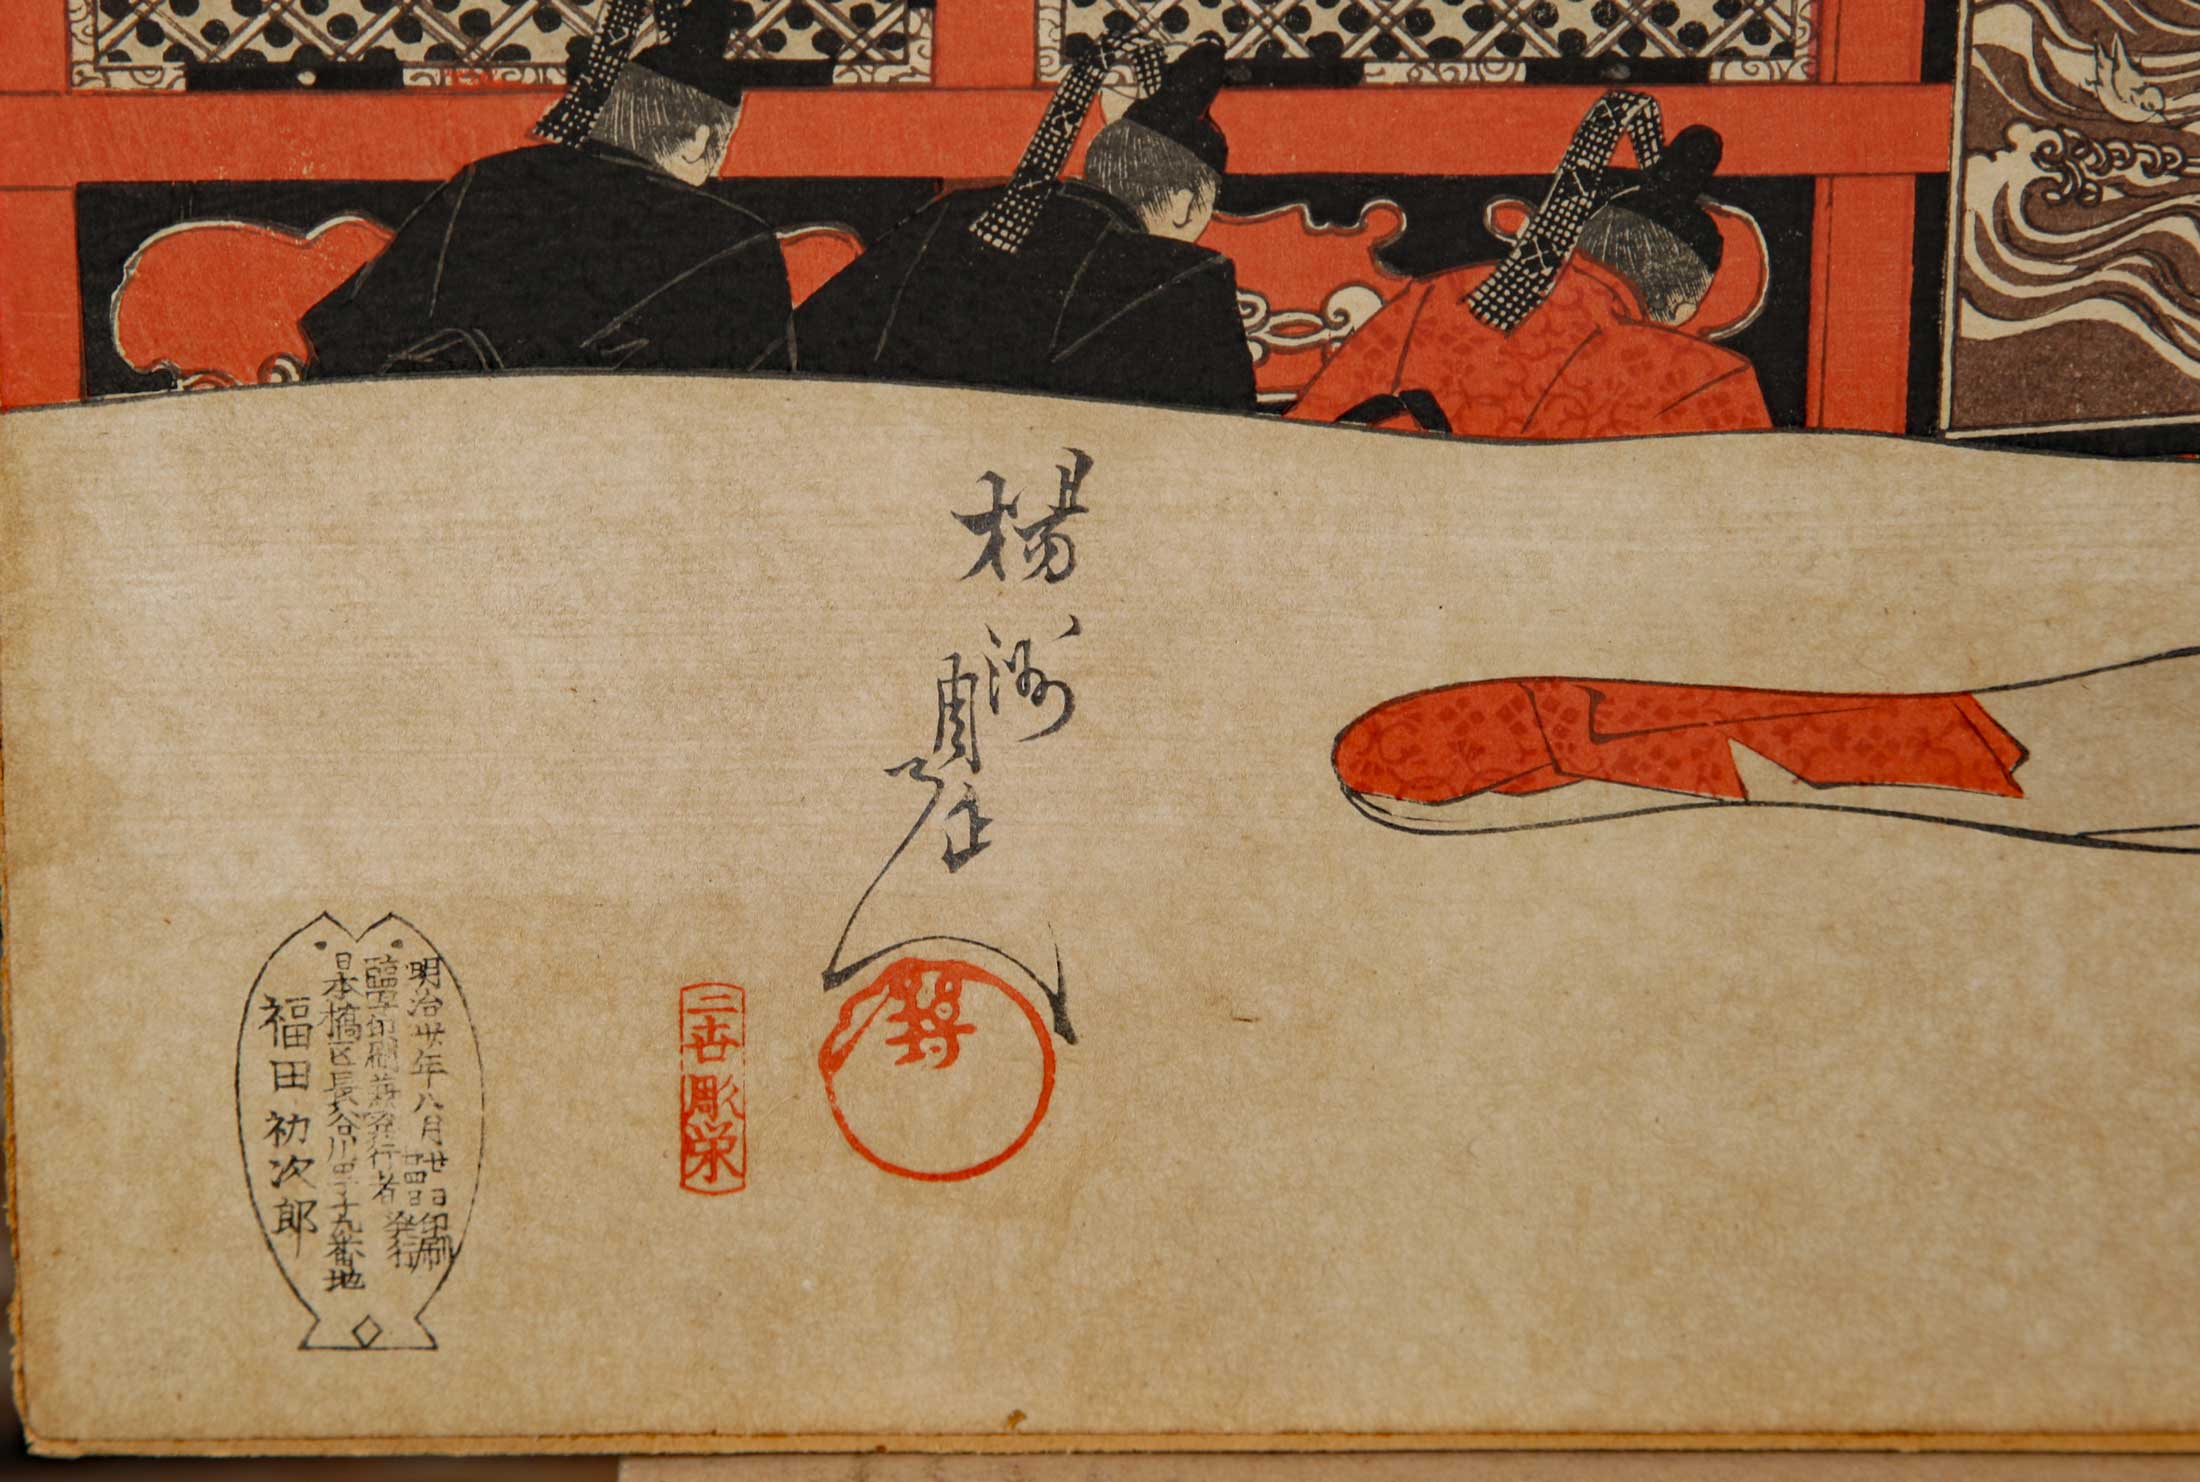 楊洲周延
二世彫栄
明治卅年八月廿日印刷
廿四日発行
臨写印刷兼発行者
日本橋区長谷川町十九番地
福田初次郎